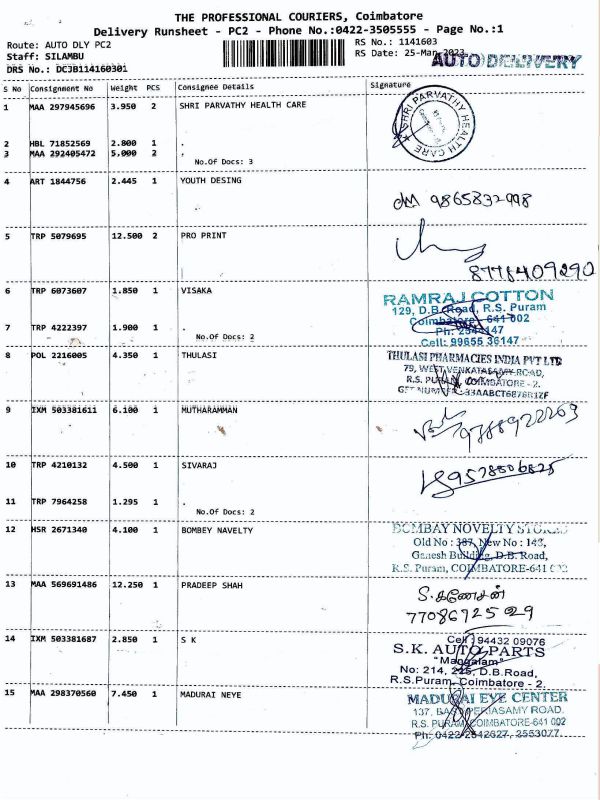 THE PROFESSIONAL COURIERS, Coimbatore
Delivery Runsheet - PC2 - Phone No.:0422-3505555 - Page No.:1
Route: AUTO DLY PC2
RS No.: 1141603
Staff: SILAMBU
RS Date: 25-Mar-2023
AUTO DELIVERY
DRS No.: DCJB114160301
S No Consignment No Weight PCS Consignee Details Signature
1 MAA 297945696 3.950 2 SHRI PARVATHY HEALTH CARE
SHRI PARVATHY HEALTH CARE
2 HBL 71852569 2.800 1 .
3 MAA 292405472 5.000 2 .
No.Of Docs: 3
4 ART 1844756 2.445 1 YOUTH DESING
9865832998
5 TRP 5079695 12.500 2 PRO PRINT
8778409290
6 TRP 6073607 1.850 1 VISAKA
RAMRAJ COTTON
129, D.B.Road, R.S. Puram
Coimbatore - 641 002
Cell: 99655 36147
7 TRP 4222397 1.900 1 .
No.Of Docs: 2
8 POL 2216005 4.350 1 THULASI
THULASI PHARMACIES INDIA PVT LTD
79, WEST VENKATASAMY ROAD,
R.S. PURAM, COIMBATORE - 2.
9 IXM 503381611 6.100 1 MUTHARAMMAN
9788922269
10 TRP 4210132 4.500 1 SIVARAJ
9578806825
11 TRP 7964258 1.295 1 .
No.Of Docs: 2
12 HSR 2671340 4.100 1 BOMBEY NAVELTY
BOMBAY NOVELTY STORES
Old No : 387, New No : 143,
Ganesh Building, D.B. Road,
R.S. Puram, COIMBATORE-641 002
13 MAA 569691486 12.250 1 PRADEEP SHAH
S.கணேசன்
7708692529
14 IXM 503381687 2.850 1 S K
Cell : 94432 09076
S.K. AUTO PARTS
"Mangalam"
No: 214, 225, D.B.Road,
R.S.Puram, Coimbatore - 2.
15 MAA 298370560 7.450 1 MADURAI NEYE
MADURAI EYE CENTER
137, PERIASAMY ROAD.
R.S. PURAM, COIMBATORE-641 002
Ph: 0422-2542627, 2553077.